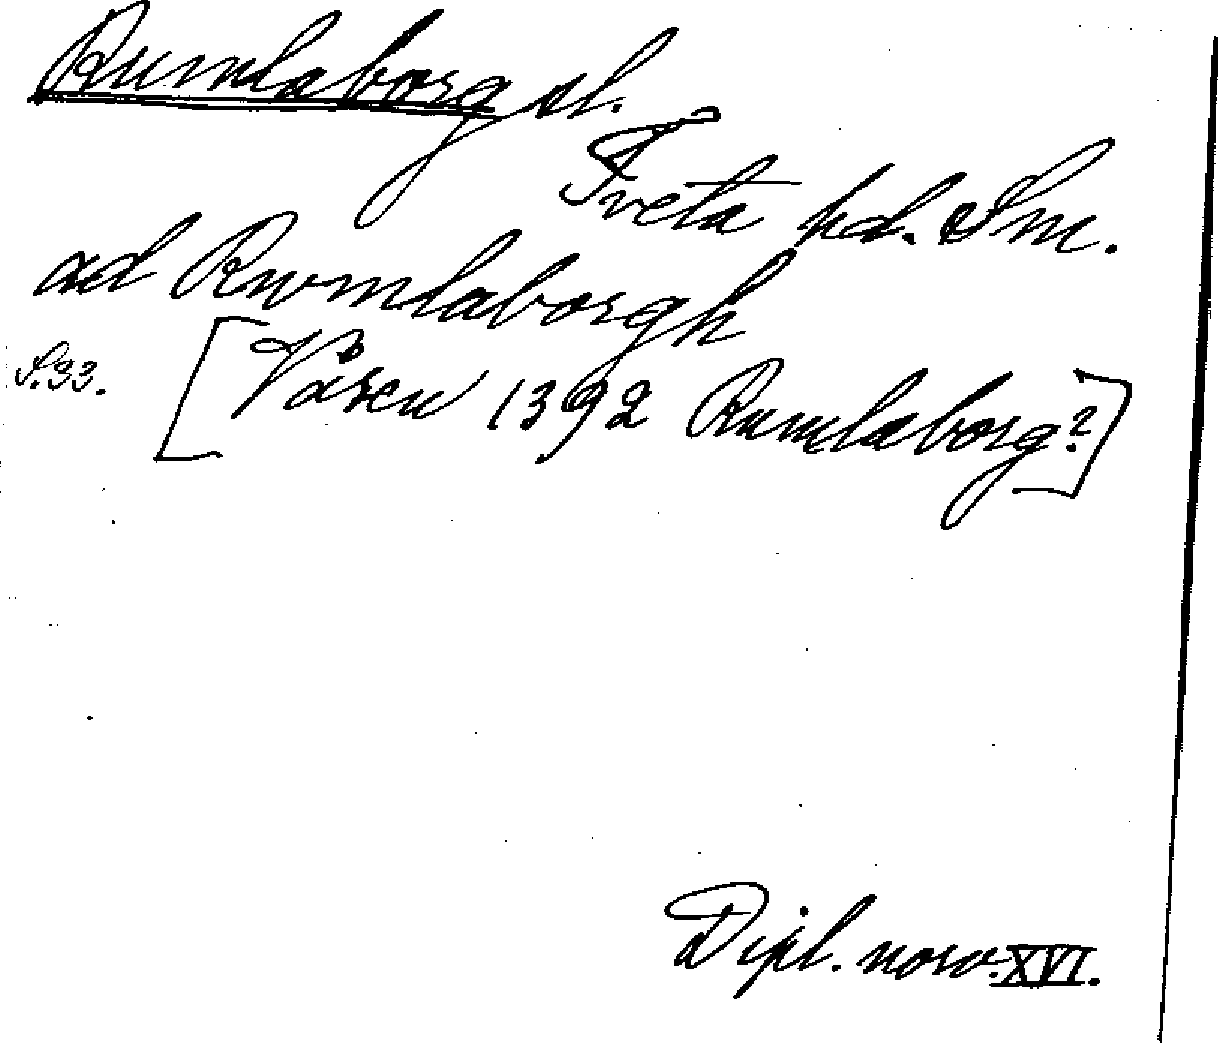 Rumlaborg sl.
Tveta hd. Sm.
ad Rwmlaborgh
S. 33. [Våren 1392 Rumlaborg?]
Dipl. norv. XVI.